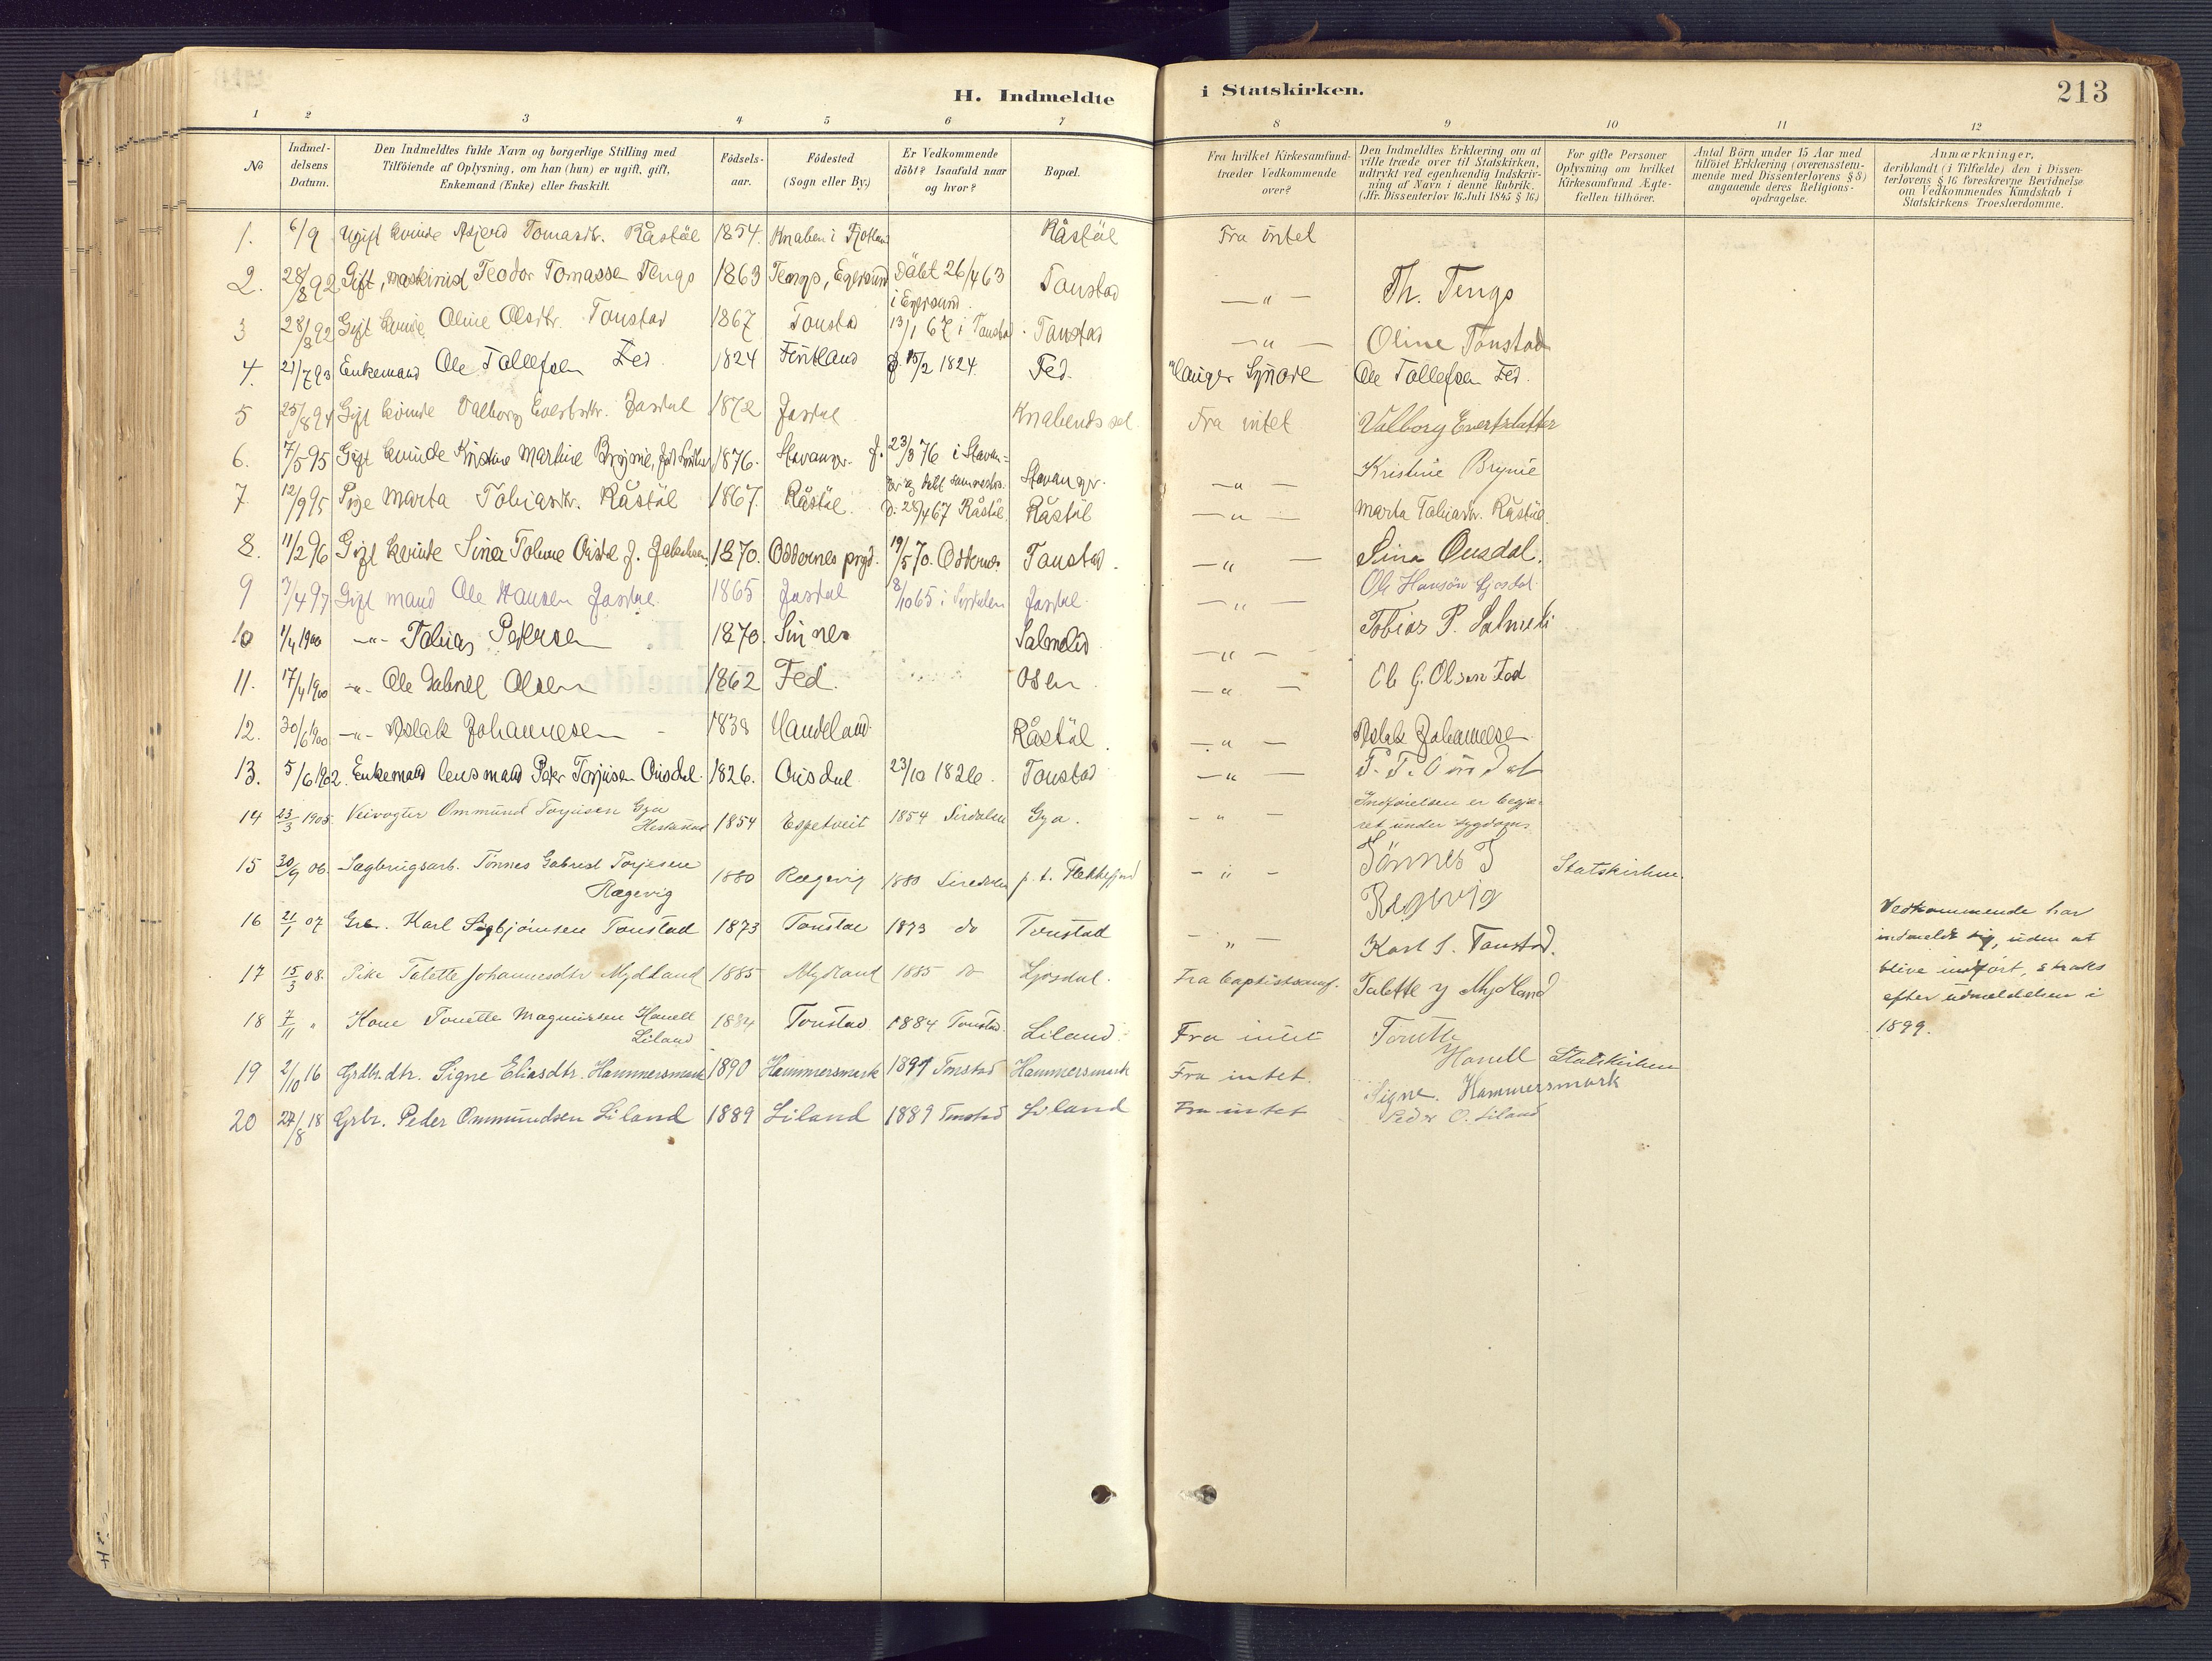 H. Indmeldte i Statskirken. 213
1 2 3 4 5 6 7 8 9 10 11 12
No
Indmel-
delsens
Datum.
Den Indmeldtes fulde Navn og borgerlige Stilling med
Tilföiende af Oplysning, om han (hun) er ugift, gift,
Enkemand (Enke) eller fraskilt.
Födsels-
aar.
Födested
(Sogn eller By.)
Er Vedkommende
döbt? Isaafald naar
og hvor?
Bopæl.
Fra hvilket Kirkesamfund
træder Vedkommende
over?
Den Indmeldtes Erklæring om at
ville træde over til Statskirken,
udtrykt ved egenhændig Indskriv-
ning af Navn i denne Rubrik.
(Jfr. Dissenterlov 16. Juli 1845 § 16.)
For gifte Personer
Oplysning om hvilket
Kirkesamfund Ægte-
fællen tilhörer.
Antal Börn under 15 Aar med
tilföiet Erklæring (overensstem-
mende med Dissenterlovens § 8)
angaaende deres Religions-
opdragelse.
Anmærkninger,
deriblandt (i Tilfælde) den i Dissen-
terlovens § 16 foreskrevne Bevidnelse
om Vedkommendes Kundskab i
Statskirkens Troeslærdomme.
1. 6/9 Ugift kvinde Asjerd Tomasdtr. Råstöl 1854. Knaben i Fjotland Råstöl Fra intet
2. 28/8 92 Gift, maskinist Teodor Tomassen Tengs 1863 Tengs, Egersund Döbt 26/4 63 i Egersund. Tonstad —"— Th. Tengs
3 28/8 92 Gift kvinde Oline Olsdtr. Tonstad 1867 Tonstad 13/1 67 i Tonstad. Tonstad —"— Oline Tonstad
4. 21/7 93 Enkemand Ole Tollefsen Fed 1824 Fintland 15/2 1824. Fed. Ole Tollefsen Fed.
5 25/8 94 Gift kvinde Valborg Evertsdtr. Josdal 1872 Josdal Knabens Fra intet Valborg Evertsdatter
6. 7/5 95 Gift kvinde Kristine Martine Brynie, 1876. Stavanger. f. 23/3 76 i Stavanger og döbt sammesteds. Stavanger. —"— Kristine Brynie
7. 12/9 95 Pige Marta Tobiasdtr. Råstöl 1867. Råstöl. D. 28/4 67 Råstöl. Råstöl —"— Marta Tobiasdtr. Råstöl.
8. 11/2 96 Gift kvinde Sina Tomine Ousdal f. Jakobsen. 1870. Oddernes prgd. 19/5 70. Oddernes Tonstad. —"— Sina Ousdal.
9 3/4 97 Gift mand Ole Hansen Josdal. 1865 Josdal 8/10 65 i Sirdalen Josdal. —"— Ole Hansön Gjosdal.
10 1/4 1900 —"— Tobias Pedersen 1870. Sinnes Salmelid —"— Tobias P. Salmeli
11. 17/4 1900 —"— Ole Gabriel Olsen 1862 Fed. Osen —"— Ole G. Olsen Fed
12. 30/6 1900 —"— Aslak Johannesen 1838 Haudeland. Råstöl. —"— Aslak Johannesen
13. 5/6 1902. Enkemand lensmand Peder Torjusen Ousdal. 1826. Ousdal 23/10 1826. Tonstad —"— P. T. Ousdal
14 23/3 1905. Veivogter Ommund Torjusen Gya 1854 Espetveit 1854 Sirdalen Gya. —"— Indförelsen er begjæ-
ret under sygdom.
15 30/9 06. Sagbrugsarb. Tönnes Gabriel Torjesen
Rægevig 1880 Rægevig 1880 Siredalen p. t. Flekkefjord —"— Tönnes T
Regevig Statskirken.
16 21/1 07 Grbr. Karl Sigbjörnsen Tonstad 1873 Tonstad 1873 do Tonstad —"— Karl S. Tonstad.
Vedkommende har
indmeldt sig, uden at
blive indfört, straks
efter udmeldelsen i
1899.
17 15/3 08. Pike Talette Johannesdtr Mydland 1885 Mydland 1885 do Ljosdal. Fra baptistsamf. Talette J Mydland
18 7/11 " Kone Tonette Magnussen Hanell
Liland 1884 Tonstad 1884 Tonstad. Liland. Fra intet Tonette
Hanell Statskirken
19 2/10 16 Grdbr. dtr. Signe Eliasdtr. Hammersmark 1890 Hammersmark 1891 Tonstad Hammersmark Fra intet. Signe. Hammersmark
20 27/8 18 Grbr. Peder Ommundsen Liland 1889 Liland 1889 Tonstad Liland Fra intet Peder O. Liland